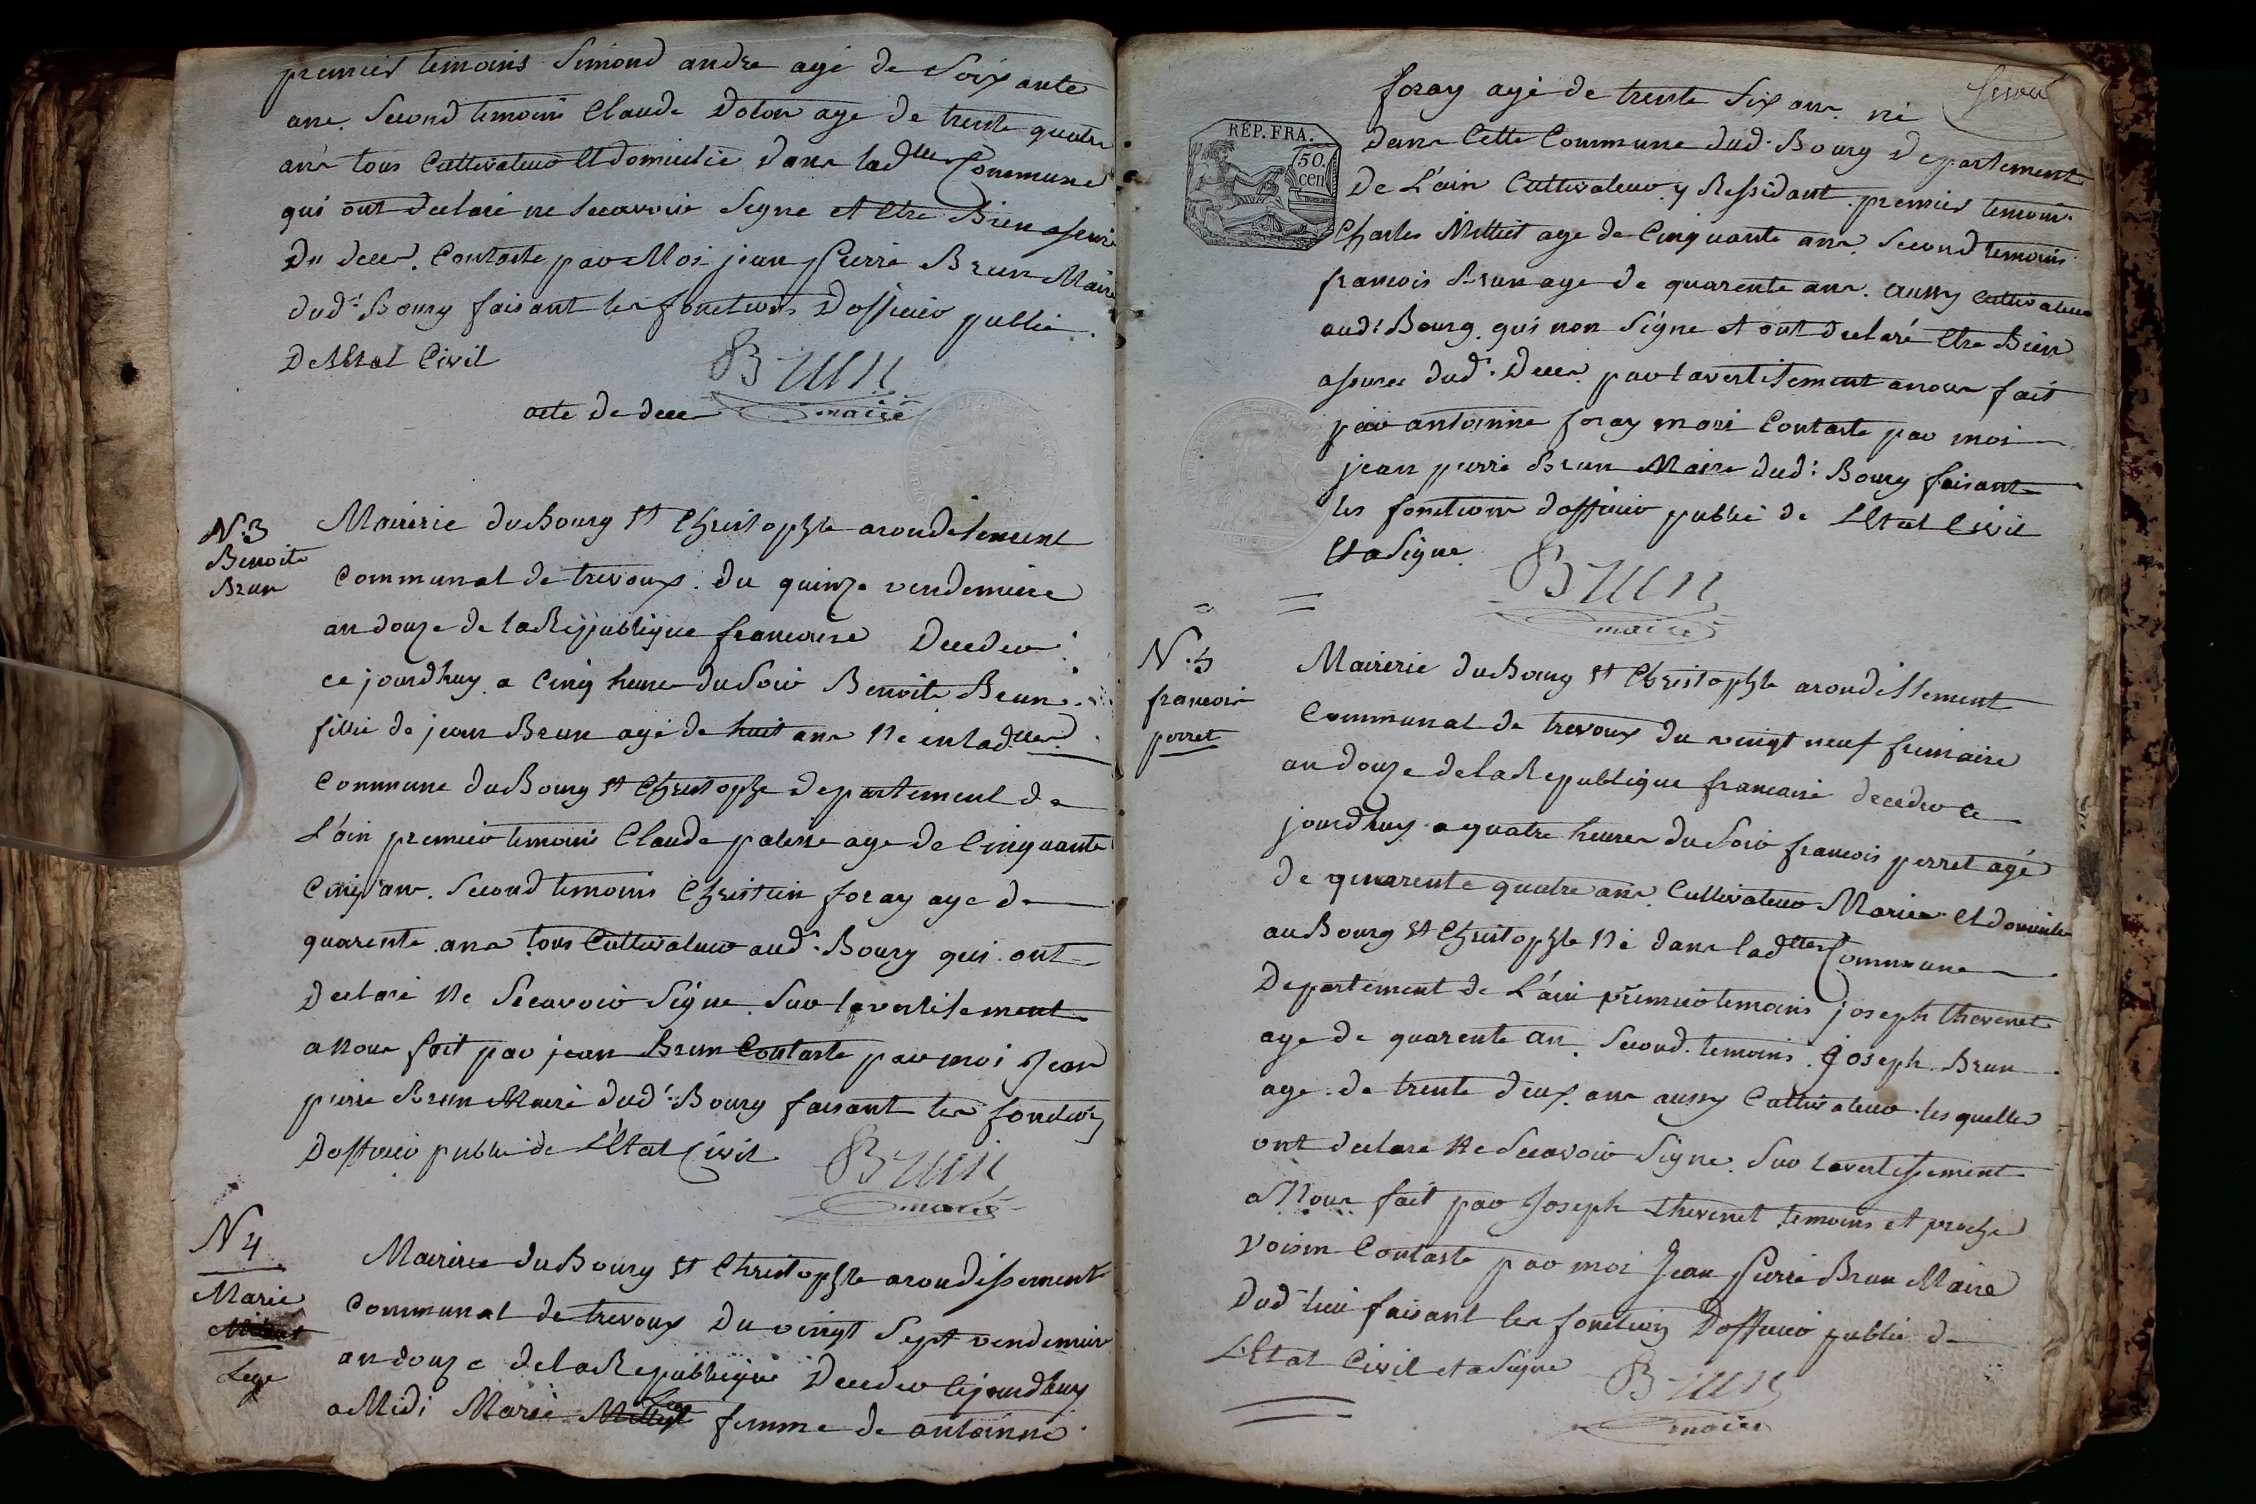 premier temoins Simond andre agé de Soixante
ans. Second temoins Claude Dolon age de trente quatre
ans tous Cultivateur Et domicilié dans ladtte Commune
qui ont declaré ne Scavoir Signe et Etre Bien assuré
Du deces. Contaste par Moi jean pierre Brun Maire
dudt Bourg faisant les fonctions Dofficier public
De l'Etat Civil
Brun
maire
acte de deces
N.3
Benoite
Brun
Mairerie du Bourg St Christophle arondisement
Communal de trevoux. du quinze vendemiere
an douze de la Republique francoise Decedee
ce jourdhuy a Cinq heures du Soir Benoite Brun
fillie de jean Brun agé de huit ans Né en ladtte
Commune du Bourg St Christophe departement de
L'ain premier temoins Claude palisse age de Cinquante
Cinq ans. Second temoins Christin foray age de
quarente ans tous Cultivateur audt Bourg qui ont
Declaré Ne Scavoir Signe. Sur lavertisement
a nous fait par jean Brun Contaste par moi Jean
pierre Brun Maire dudt Bourg faisant les fonction
Dofficier public de L'Etat Civil
Brun
maire
N 4
Marie
Lege
Mairerie du Bourg St Christophle arondissement
Communal de trevoux Du vingt Sept vendemier
an douze de la Republique Decedee Cejourdhuy
a Midi Marie Milliet Lege femme de antoinne
foray agé de trente Six ans. né
dans Cette Commune dudt Bourg Departement
De L'ain Cultivateur y Ressidant. premier temoin
Charles Milliet age de Cinquante ans. Second temoins
francois Brun age de quarente ans. aussy Cultivateur
audt Bourg. qui non Signe et ont declaré Etre Bien
assuree dudt Deces par lavertisement a nous fait
par antoinne foray mari Contaste par moi
jean pierre Brun Maire dudt Bourg faisant
les fonctions dofficier public de L'Etat Civil
Et a Signe.
Brun
maire
RÉP. FRA.
50.
cen
N.5
francois
perret
Mairerie du Bourg St Christophle arondissement
Communal de trevoux du vingt neuf frimaire
an douze de la Republique francaise decedee ce
jourdhuy a quatre heures du Soir francois perret agé
de quarente quatre ans. Cultivateur Mariée Et domicile
au Bourg St Christophle né dans ladtte Commune
Departement de L'ain premier temoins joseph thevenet
age de quarente an. Second temoins. Joseph Brun
age de trente deux ans aussy Cultivateur lesquelles
ont declare Ne Scavoir Signe. Sur Lavertissement
a Nous fait par Joseph thevenet temoins et proche
Voisin Contaste par moi Jean Pierre Brun Maire
Dudt lieu faisant les fonction Dofficier public de
L'Etat Civil et a Signe
Brun
maire